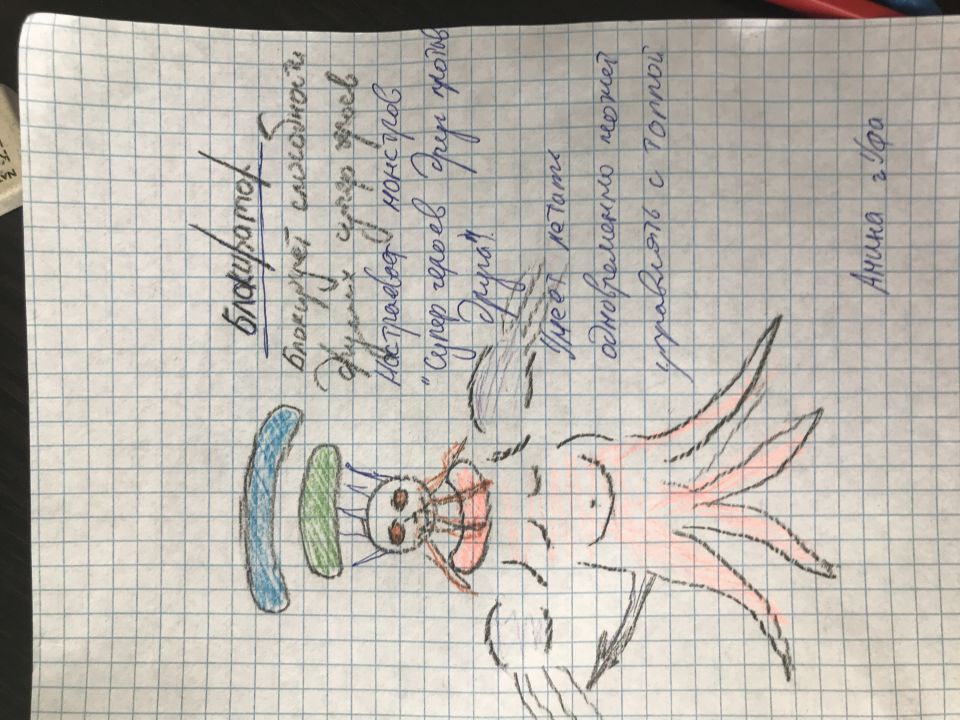 Блокиратор
блокирует способности
других супер героев
настраивает монстров
"Супер героев друг против
друга".
Умеет летать
одновременно может
управлять с толпой
Амина г Уфа